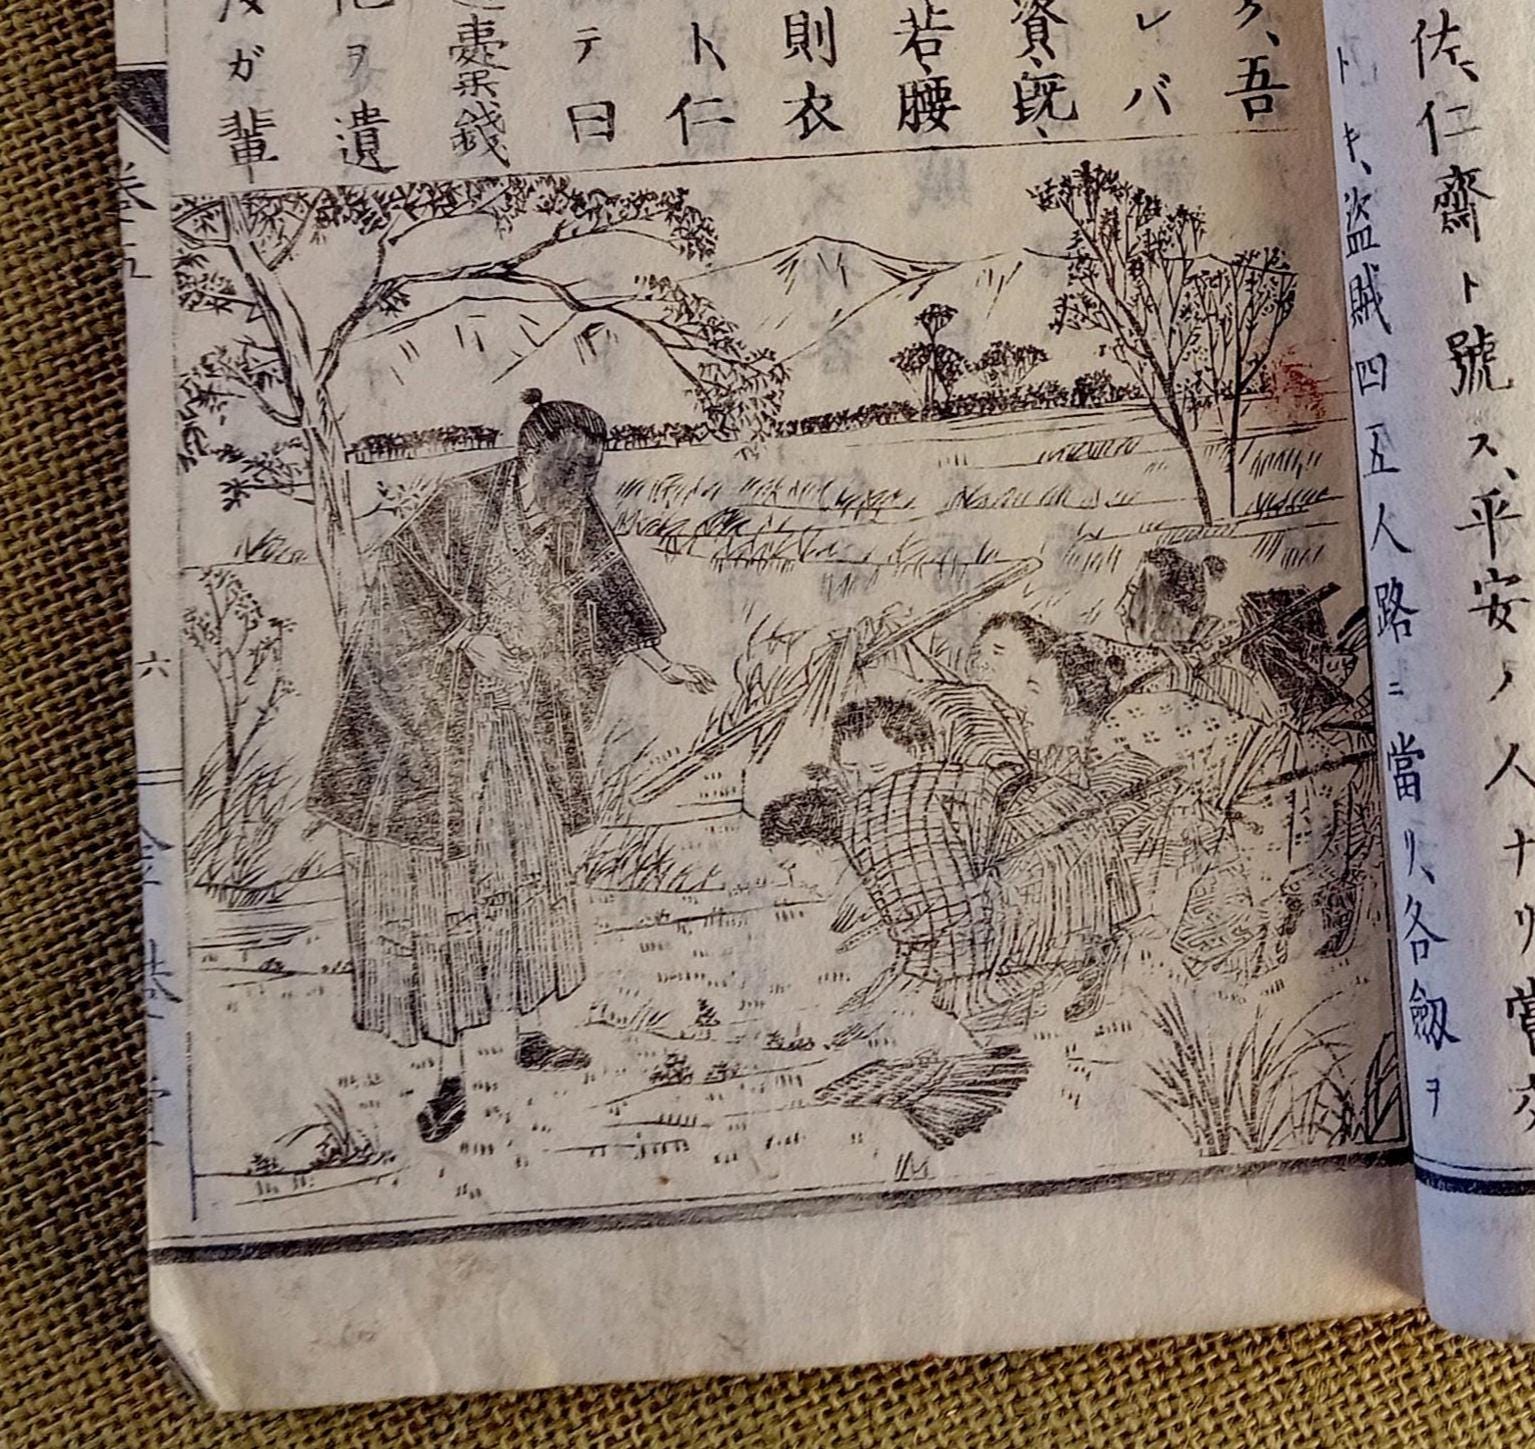 佐、仁齋ト號ス、平安ノ人ナリ嘗
トキ、盜賊四五人路ニ當リ、各劔ヲ
ク、吾
レバ
資、既、
若、腰
則衣
ト仁
テ曰
錢
ヲ遺
ガ輩
卷五
六